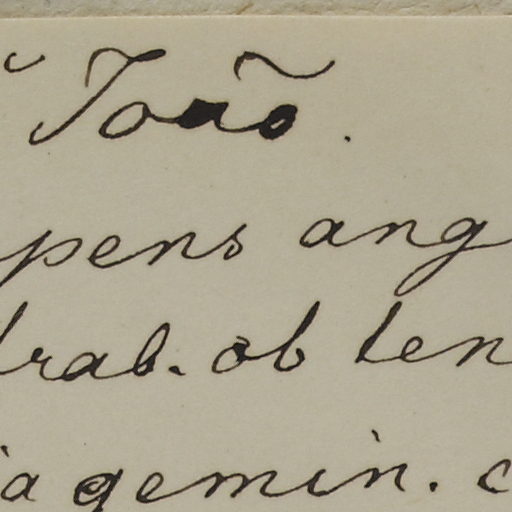 João.
pens ang
rab. ob len
a gemin. c